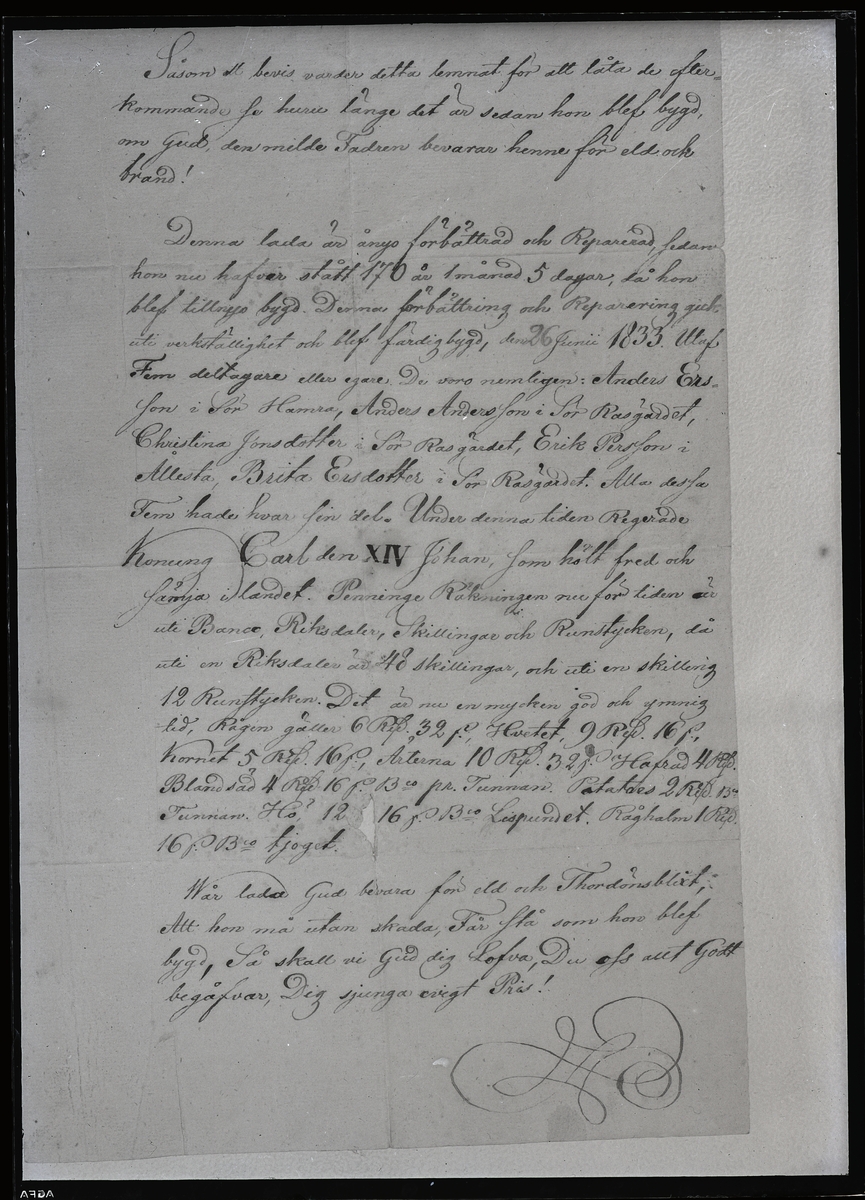 Såsom ett bevis varder detta lemnat för att låta de efter-
kommande se huru länge det är sedan hon blef bygd,
om Gud, den milde Fadren bevarar henne för eld och
brand!
Denna lada är ånyo förbättrad och Reparerad, sedan
hon nu hafver stått 170 år 1 månad 5 dagar, då hon
blef tillnyo bygd. Denna förbättring och Reparering gick
uti verkställighet och blef färdigbygd, den 26 Junii 1833. Utaf
Fem deltagare eller egare. De voro nemligen: Anders Ers-
son i Sör Hamra, Anders Andersson i Sör Rasgärdet,
Christina Jonsdotter i Sör Rasgärdet, Erik Persson i
Ållesta, Brita Ersdotter i Sör Rasgärdet. Alla dessa
Fem hade hvar sin del. Under denna tiden Regerade
Konung Carl den XIV Johan, som hölt fred och
sämja i landet. Penninge Räkningen nu för tiden är
uti Banco, Riksdaler, Skillingar och Runstycken, då
uti en Riksdaler är 48 skillingar, och uti en skilling
12 Runstycken. Det är nu en mycken god och ymnig
tid, Rågen gäller 6 Rd. 32 s., Hvetet, 9 Rd. 16 s.,
Kornet 5 Rd. 16 s., Ärterna 10 Rd. 32 s. Hafrad 4 Rd.
Blandsäd 4 Rd 16 s. Bco pr. Tunnan. Potatoes 2 Rd.
Tunnan. Hö, 12 16 s. Bco Lispundet. Råghalm 1 Rd.
16 s. Bco tjoget.
Wår lada Gud bevara för eld och Thordönsblixt,
Att hon må utan skada, Får stå som hon blef
bygd, Så skall vi Gud dig Lofva, Du oss allt Godt
begåfvar, Dig sjunga evigt Pris!
AGFA